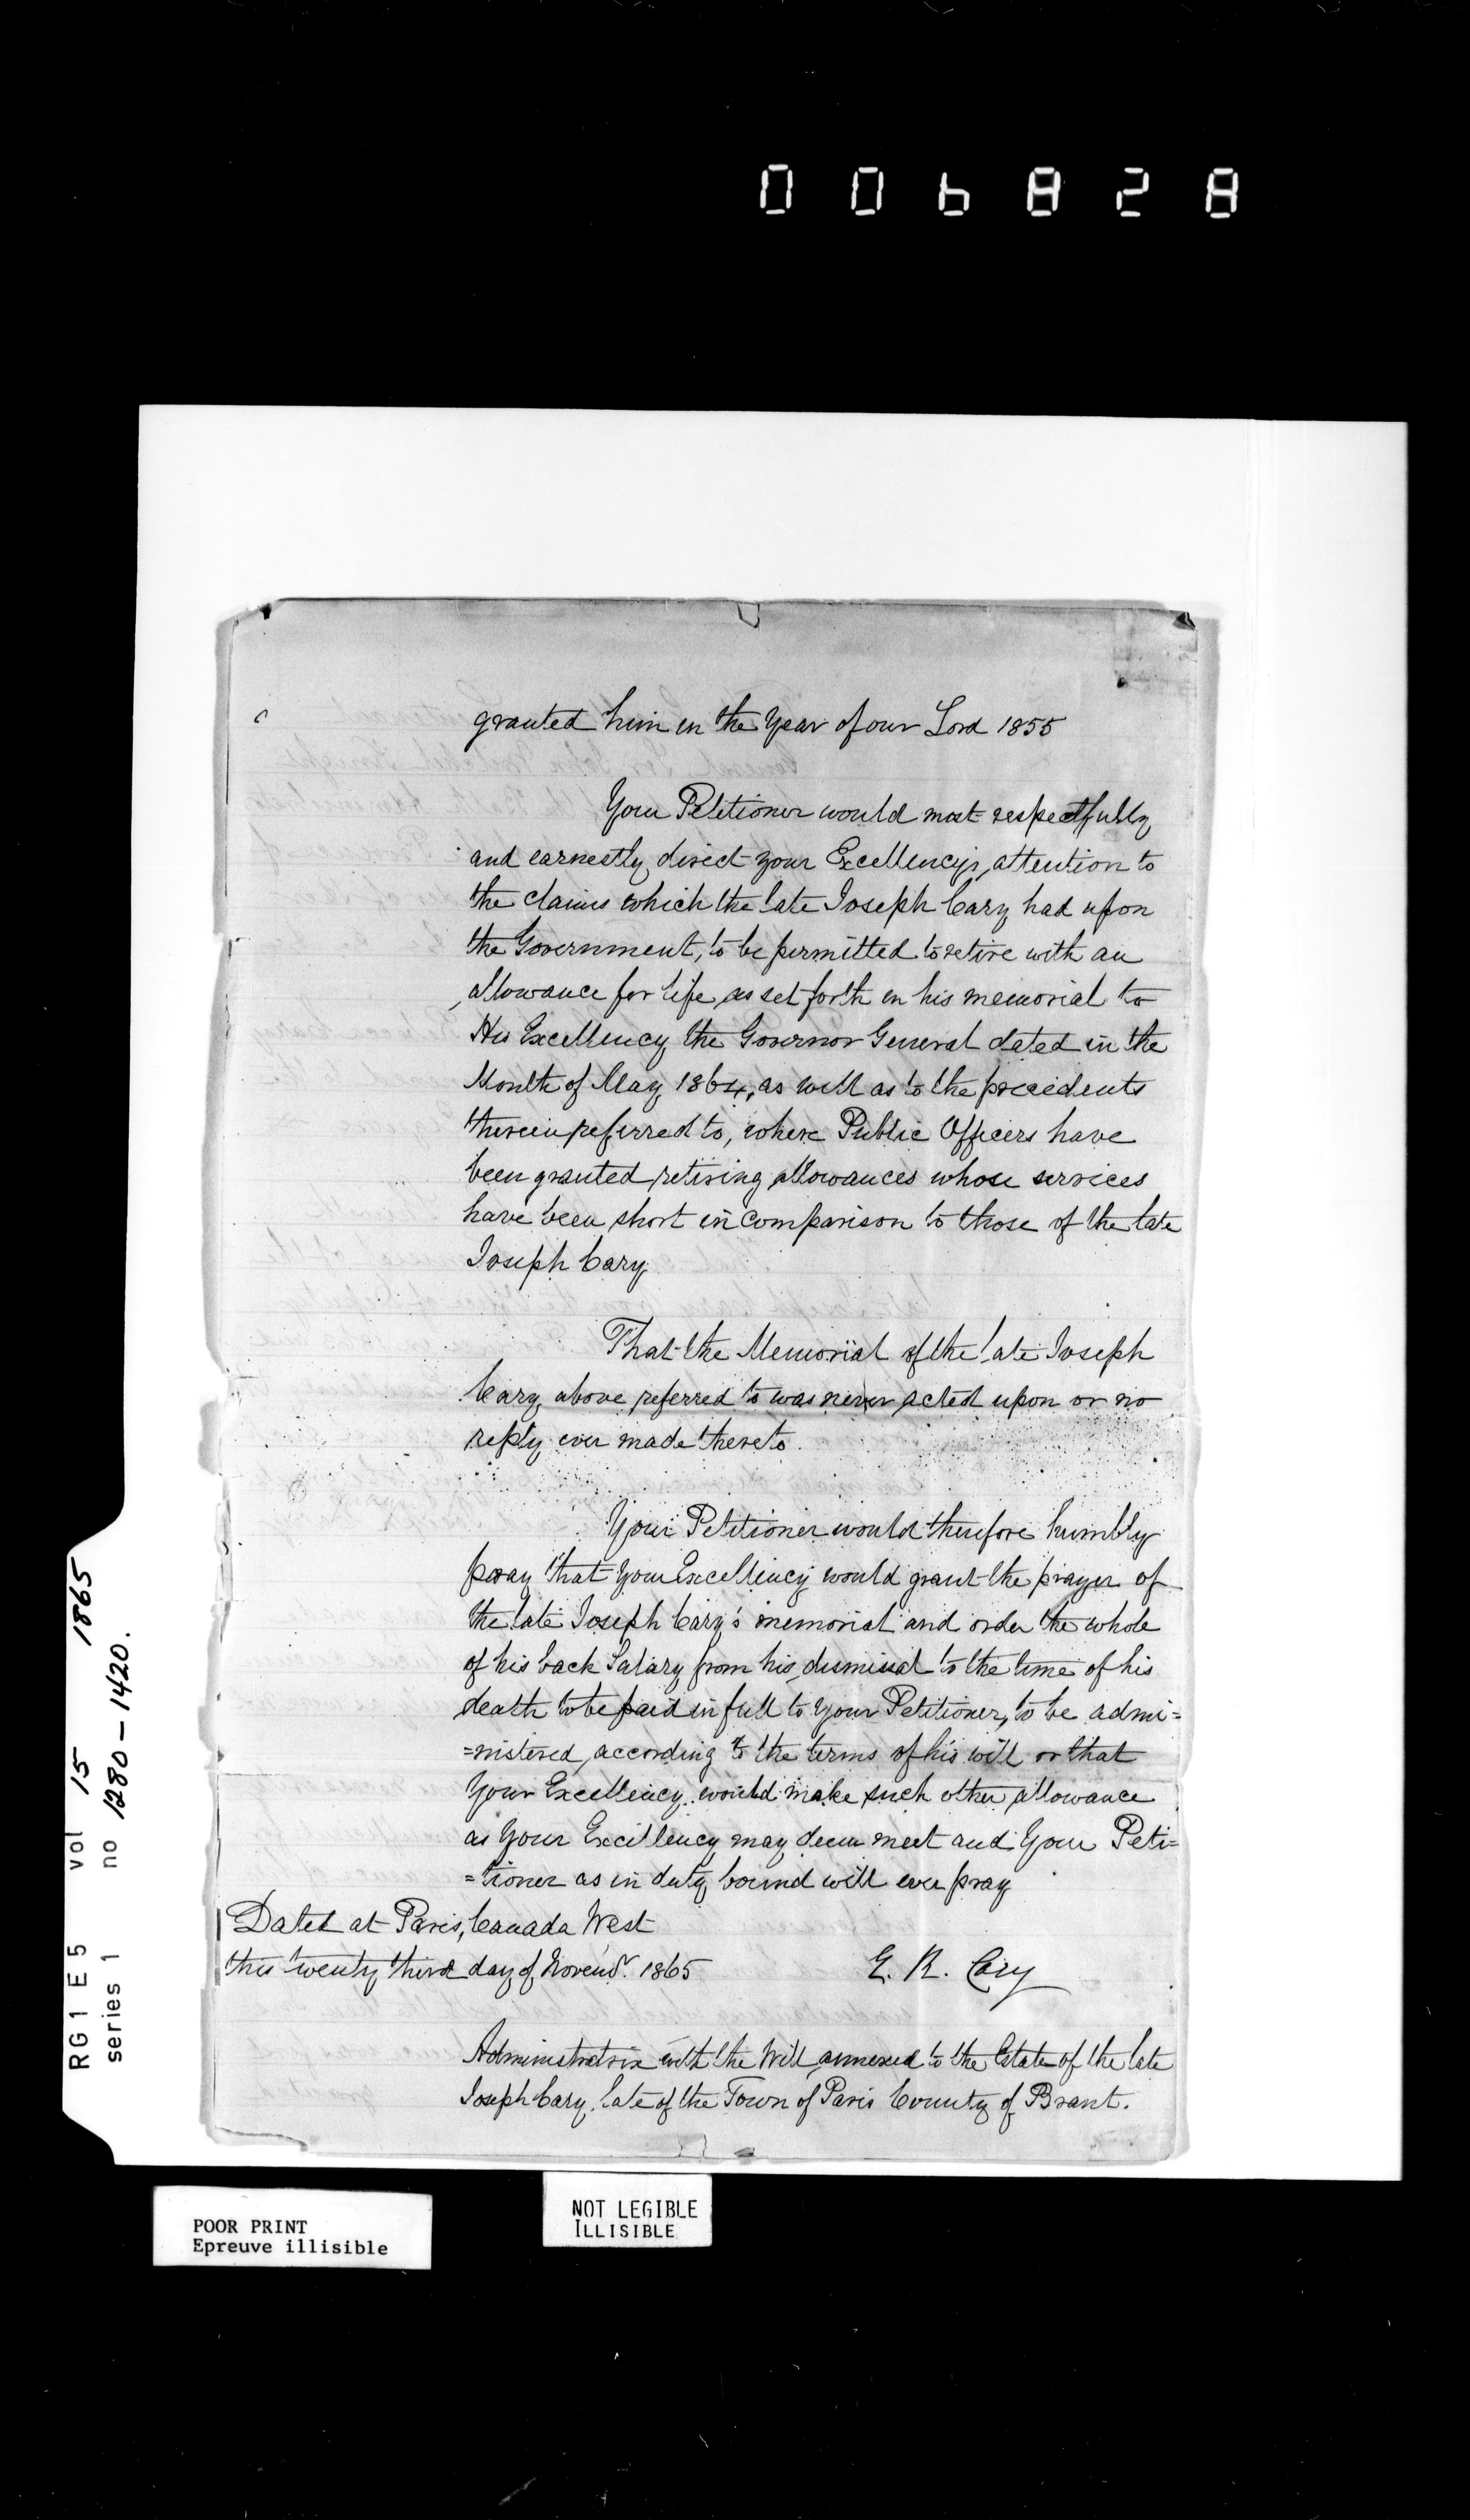 006828
granted him in the Year of our Lord 1855
Your Petitioner would most respectfully
and earnestly direct your Excellency's attention to
the claims which the late Joseph Cary had upon
the Government, to be permitted to retire with an
allowance for life as set forth in his memorial to
His Excellency the Governor General dated in the
Month of May 1864, as well as to the precedents
therein referred to, where Public Officers have
been granted retiring allowances whose services
have been short in comparison to those of the late
Joseph Cary
That the Memorial of the late Joseph
Cary above referred to was never acted upon or no
reply ever made thereto.
Your Petitioner would therefore humbly
pray that Your Excellency would grant the prayer of
the late Joseph Cary's memorial and order the whole
of his back Salary from his dismissal to the time of his
death to be paid in full to Your Petitioner, to be admi=
=nistered according to the terms of his will or that
Your Excellency would make such other allowance
as Your Excellency may deem meet and Your Peti=
=tioner as in duty bound will ever pray
Dated at Paris, Canada West
this twenty third day of Novemr. 1865
E. R. Cary
Administratrix with the Will annexed to the Estate of the late
Joseph Cary, late of the Town of Paris County of Brant.
RG1 E5 vol 15 1865
series 1 no 1280 - 1420.
POOR PRINT
Epreuve illisible
NOT LEGIBLE
ILLISIBLE